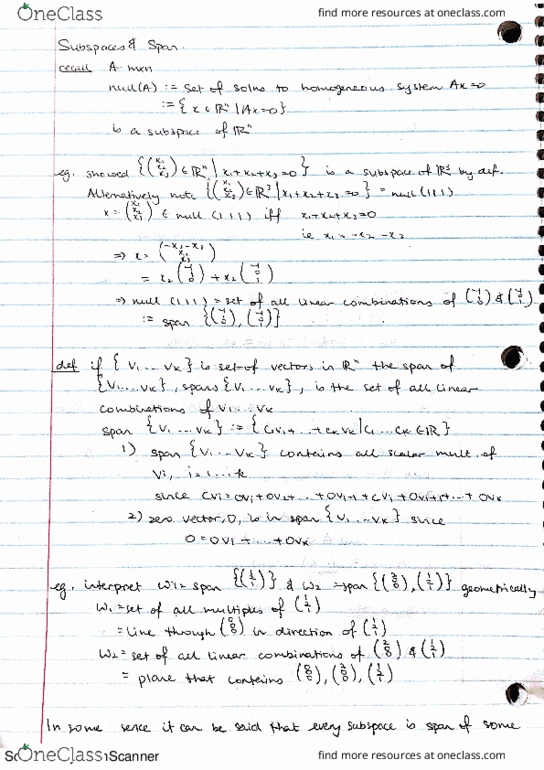 OneClass find more resources at oneclass.com
Subspaces & Span
recall A mxn
null(A) := set of solns to homogeneous system Ax=0
:= {x ∈ ℝⁿ | Ax=0}
is a subspace of ℝⁿ
eg. showed {(x₁ x₂ x₃) ∈ ℝⁿ | x₁+x₂+x₃=0} is a subspace of ℝ³ by def.
Alternatively note {(x₁ x₂ x₃) ∈ ℝ³ | x₁+x₂+x₃=0} = null(1 1 1)
x = (x₁ x₂ x₃) ∈ null (1 1 1) iff x₁+x₂+x₃=0
ie x₁ = -x₂ - x₃
⇒ x =
= x₂(-1 1 0) + x₂(-1 0 1)
⇒ null (1 1 1) = set of all linear combinations of (-1 1 0) & (-1 0 1)
:= span {(-1 1 0), (-1 0 1)}
def if {v₁ ... vₖ} is set of vectors in ℝⁿ the span of
{v₁ ... vₖ}, span {v₁ ... vₖ}, is the set of all linear
combinations of v₁ ... vₖ
span {v₁ ... vₖ} := {c₁v₁ + ... + cₖvₖ | c₁ ... cₖ ∈ ℝ}
1) span {v₁ ... vₖ} contains all scalar mult. of
vᵢ, i=1...k
since cvᵢ = 0v₁ + 0v₂ + ... + 0vᵢ₋₁ + cvᵢ + 0vᵢ₊₁ + ... + 0vₖ
2) zero vector, 0, is in span {v₁ ... vₖ} since
0 = 0v₁ + ... + 0vₖ
eg. interpret W₁ = span & W₂ = span geometrically
W₁ = set of all multiples of
= line through (0 0 0) in direction of
W₂ = set of all linear combinations of &
= plane that contains (0 0 0),
In some sence it can be said that every subspace is span of some
OneClass Scanner find more resources at oneclass.com